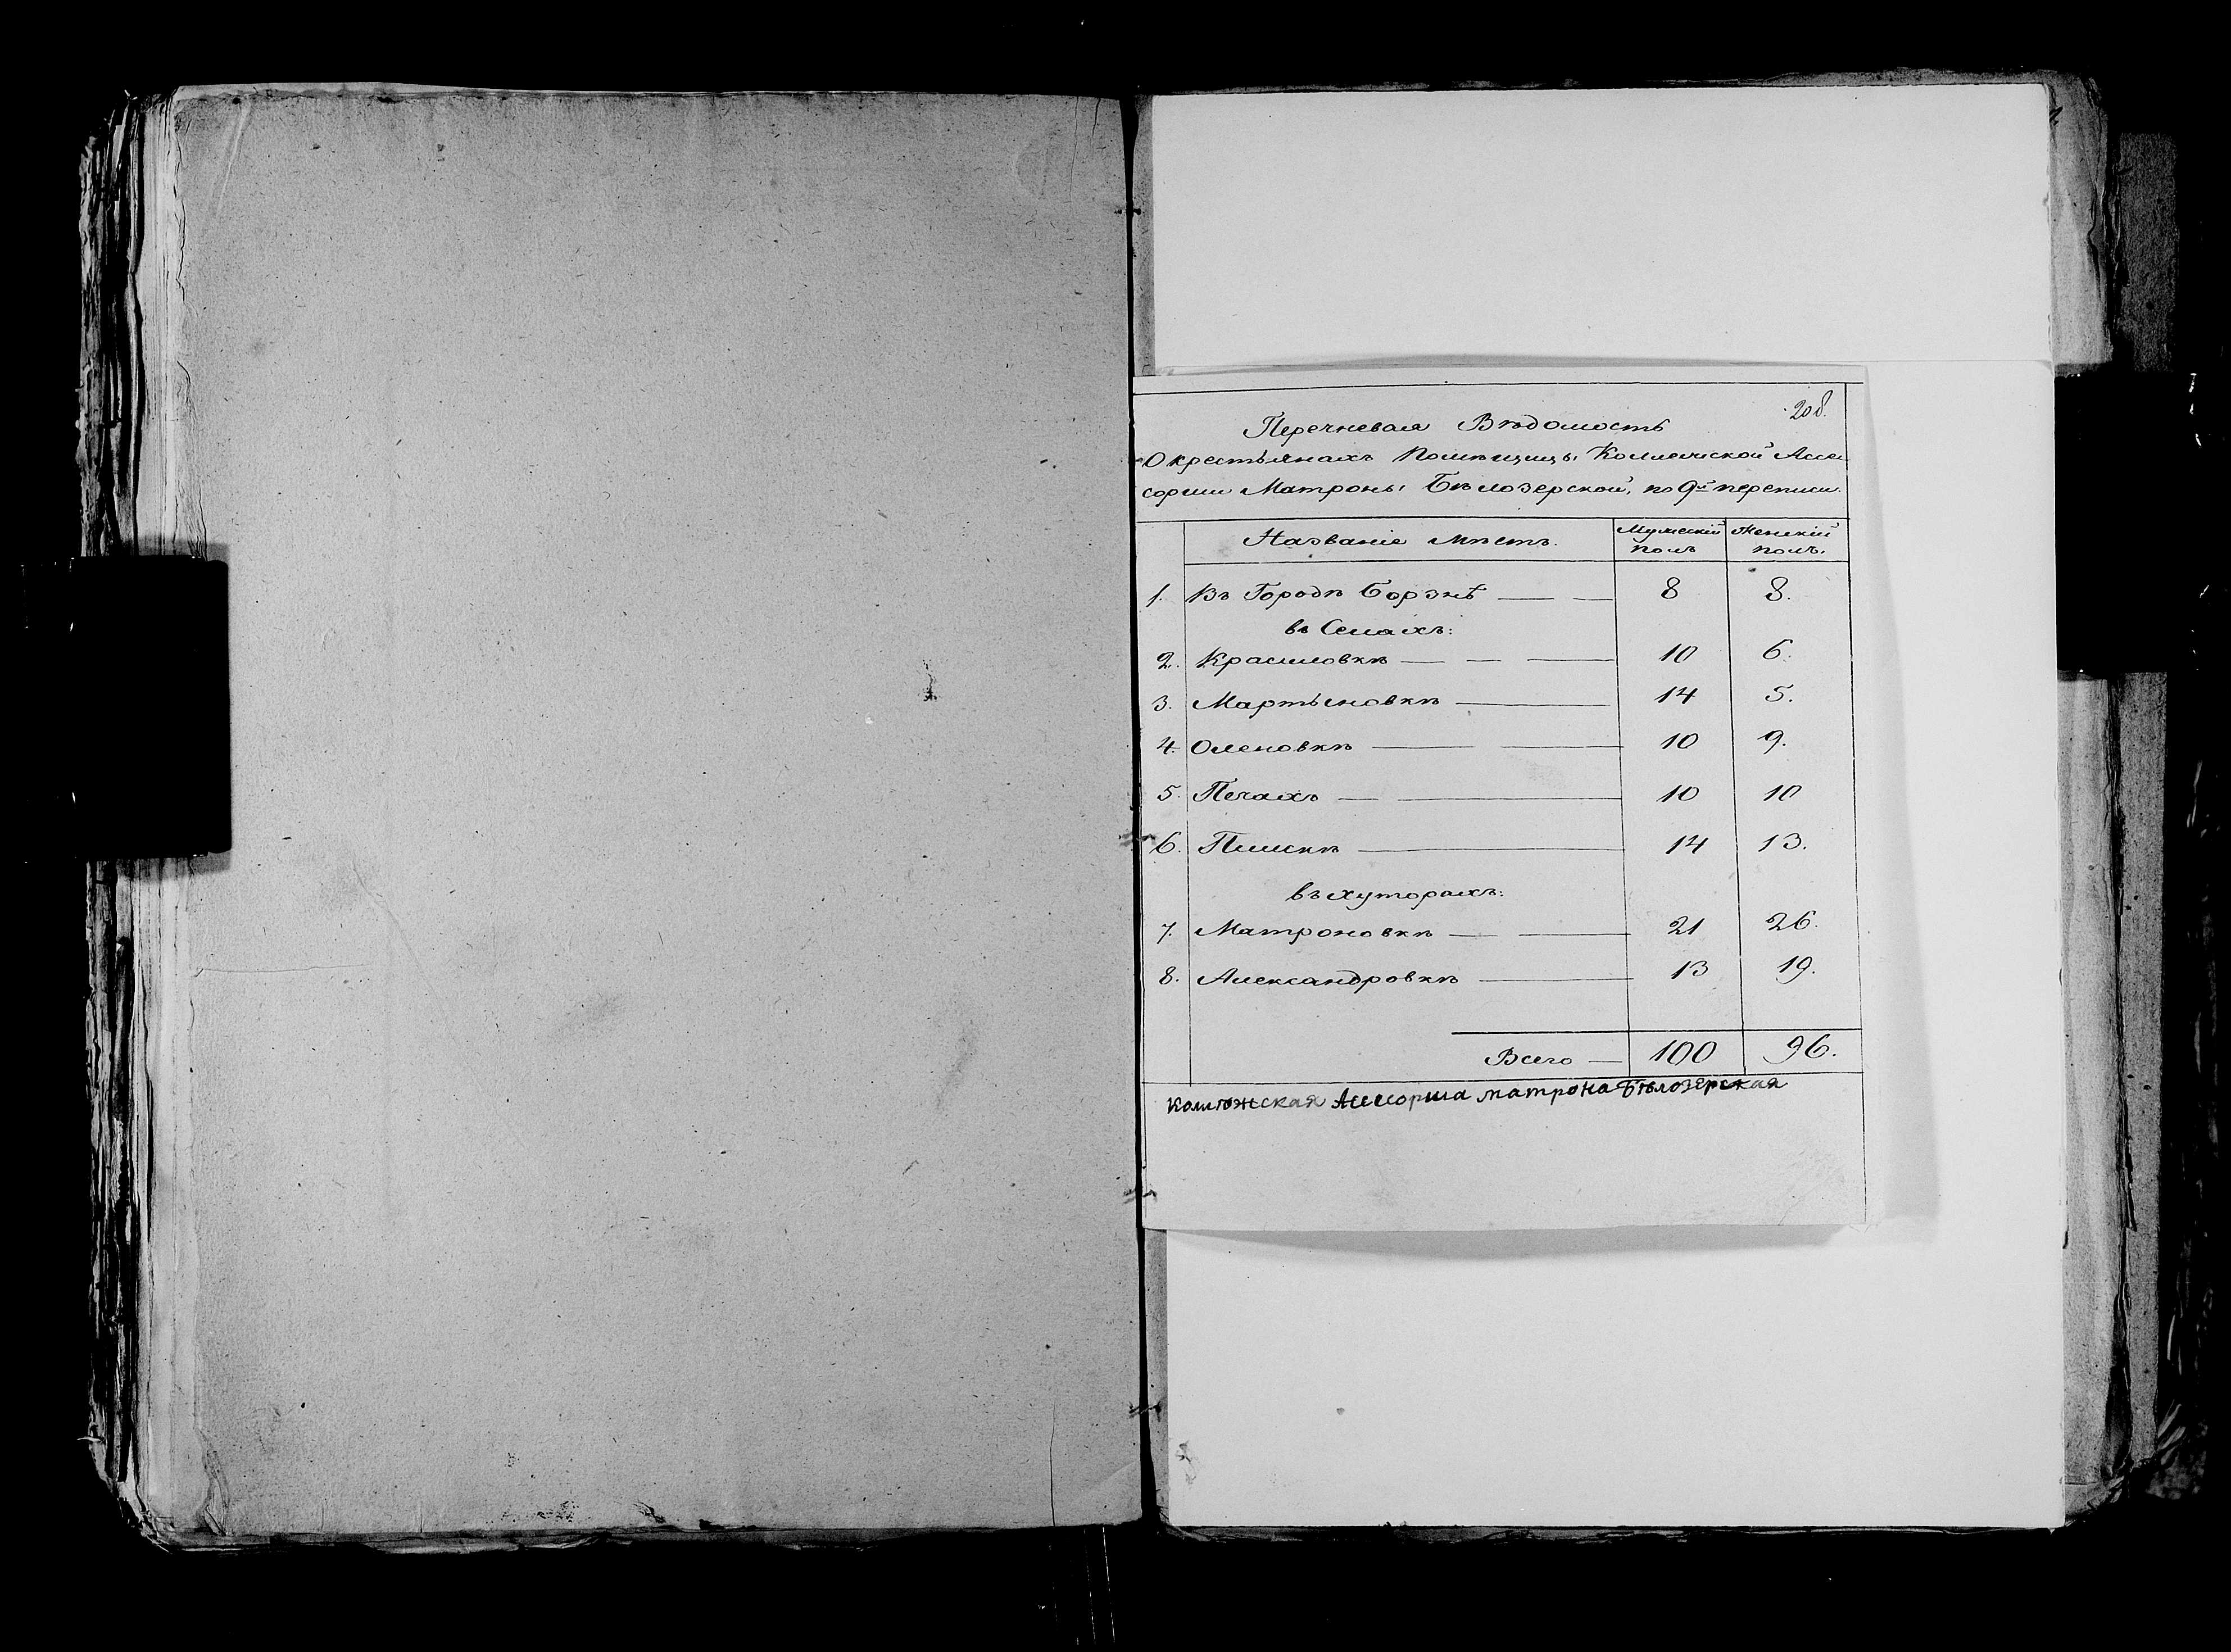 208.
Перечневая Вѣдомость
О крестьянахъ Помѣщицы Коллежской Ассе
сорши Матроны Бѣлозерской, по 9й переписи.
Названіе мѣстъ. Мужескій полъ Женскій полъ.
1. Въ Городѣ Борзнѣ — — 8 8.
въ Селахъ:
2. Красиловкѣ — — — 10 6.
3. Мартыновкѣ — 14 5.
4. Оленовкѣ — — 10 9.
5. Печахъ — — 10 10
6. Плискѣ — 14 13.
въ хуторахъ:
7. Матроновкѣ — — 21 26.
8. Александровкѣ — 13 19.
Всего — 100 96.
Асесорша матрона Бѣлозерская